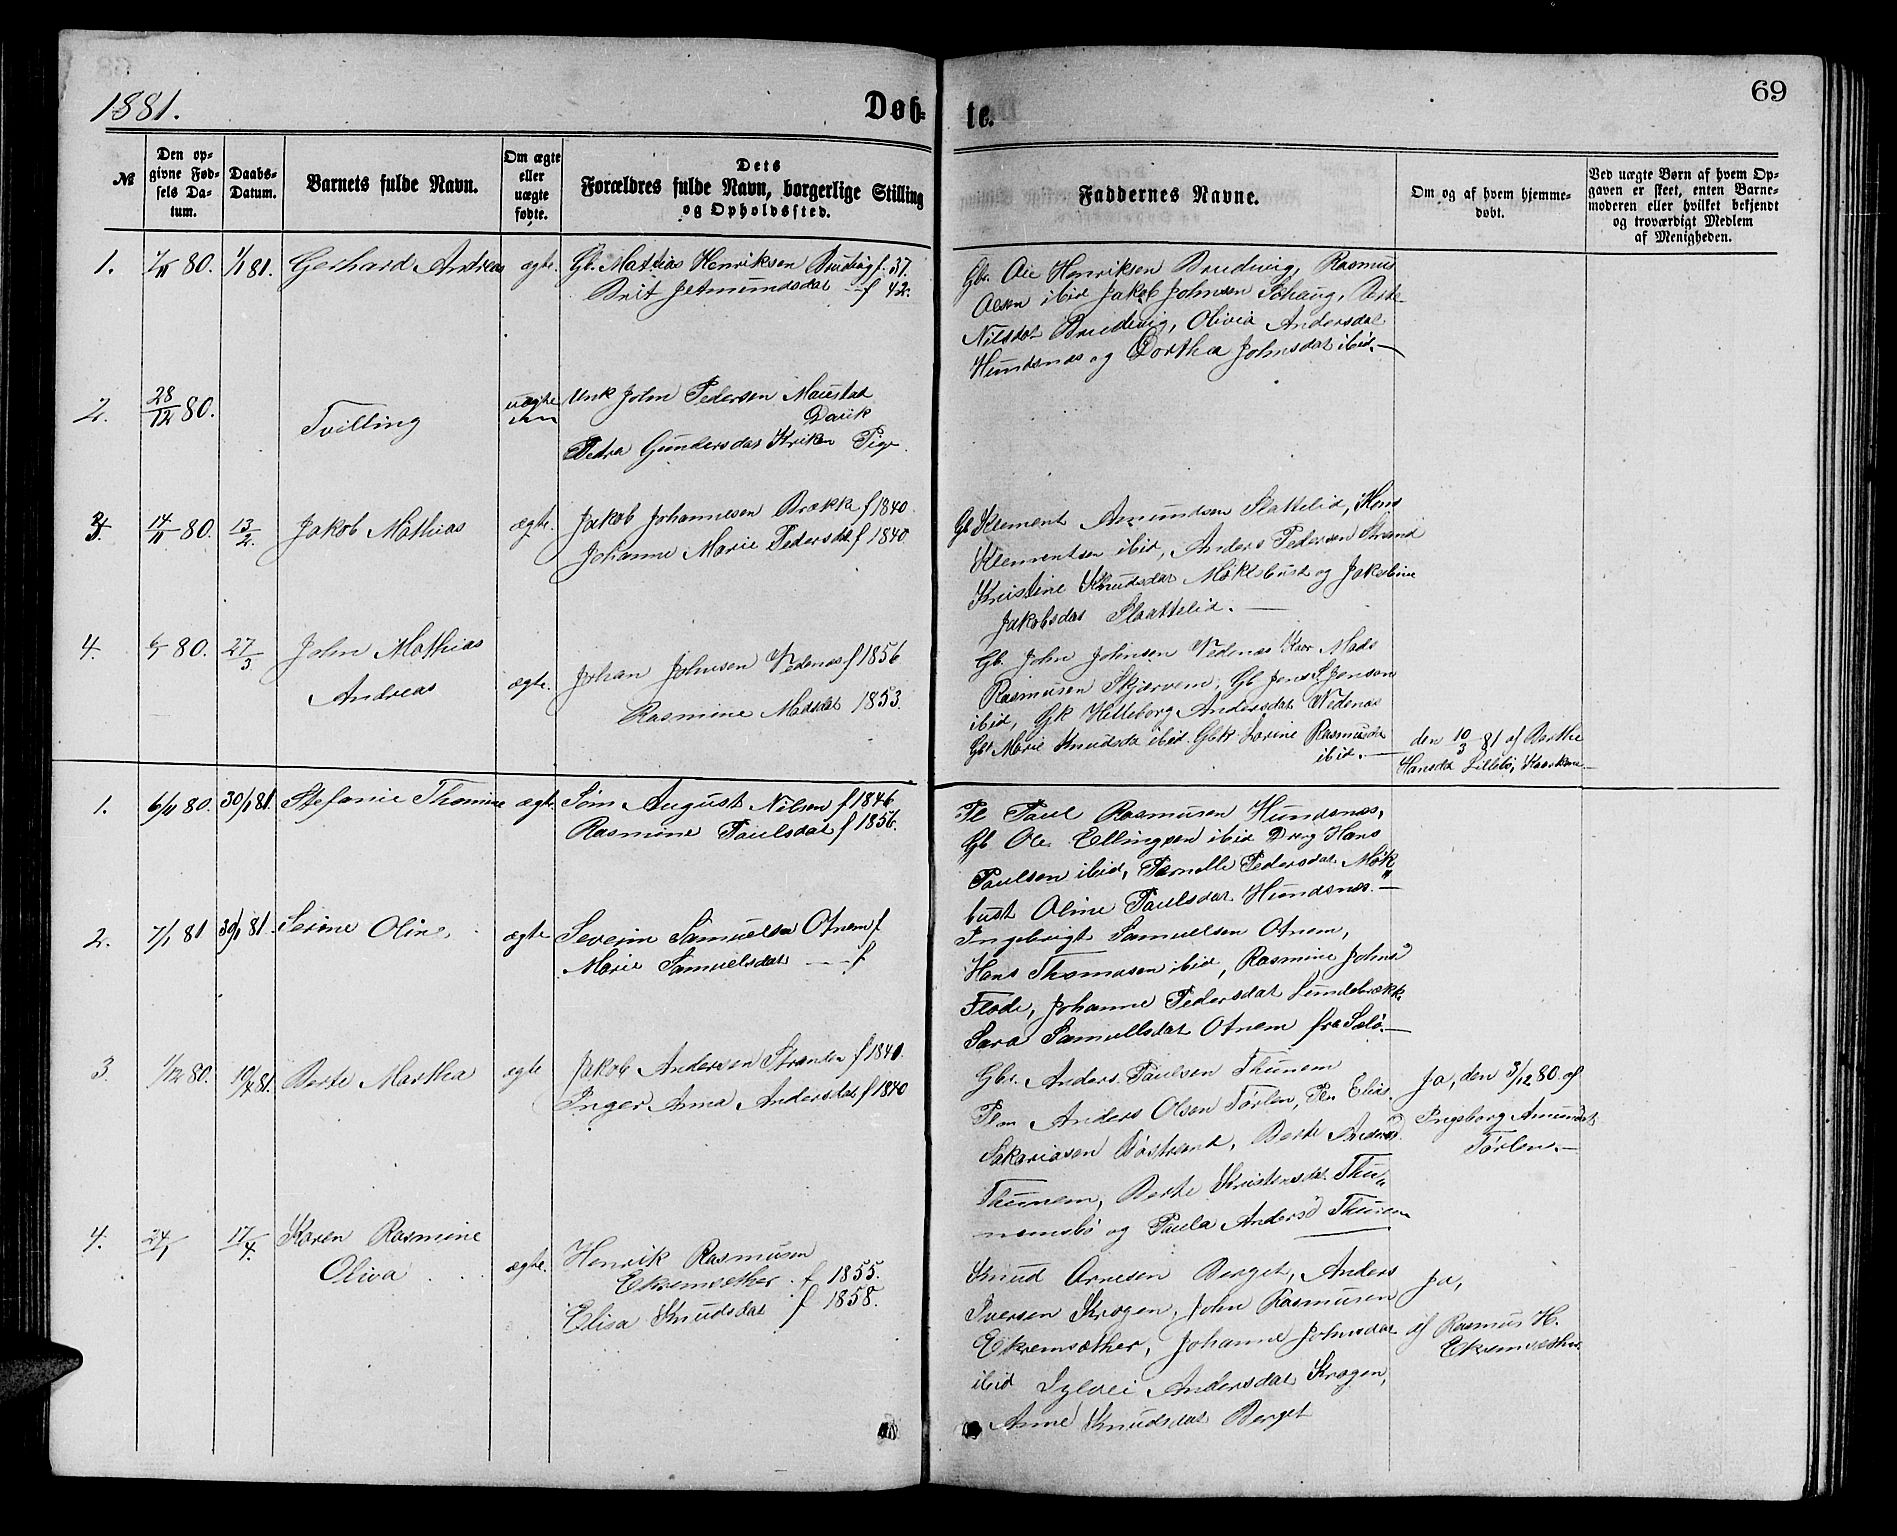 1881.
Døb-
te.
69
№
Den op-
givne Fød-
sels Da-
tum.
Daabs-
Datum.
Barnets fulde Navn.
Om ægte
eller
uægte
fødte.
Dets
Forældres fulde Navn, borgerlige Stilling
og Opholdssted.
Faddernes Navne.
Om og af hvem hjemme-
døbt.
Ved uægte Børn af hvem Op-
gaven er skeet, enten Barne-
moderen eller hvilket bekjendt
og troværdigt Medlem
af Menigheden.
1. 80. 1/1 81. Gerhard Andreas ægte. Gb. Mathias Henriksen Brudvig f. 37.
Brit Jetmundsdat — f 42.
Gbr. Ole Henriksen Brudvig, Rasmus
Olsen ibid Jakob Johnsen Solhaug, Berte
Nilsdat Brudvig, Olivia Andersdat
Hundsnes og Dorthea Johnsdat ibid. —
2. 28/12 80. Tvilling uægte Unk John Pedersen Maustad
Davik
Petra Gundersdat Kriken Pige.
3. 14/11 80. 13/2. Jakob Mathias ægte. Jakob Johannesen Brække f 1840.
Johanne Marie Pedersdat f 1840
Gb Klement Amundsen Slattelid, Hans
Klementsen ibid, Anders Pedersen Strand
Kristine Knudsdat Møklebust og Jakobine
Jakobsdat Slaattelid. —
4. 80. 27/3 John Mathias
Andreas ægte. Johan Johnsen Vedenes f 1856
Rasmine Madsdat 1853.
Gb. John Johnsen Vedenes Kaar Mads
Rasmusen Skjærvem, Gb Jens S Jensen
ibid, Gk Helleborg Andersdat Vedenes
Gbr Marie Knudsda ibid Gbk Lovine Rasmusda
ibid. —
den 10/3 81 af Berthe
Hansda Lillebø,
1. 6/11 80. 30/1 81. Stefanie Thomine ægte Søm. August Nilsen f 1846
Rasmine Paulsdat f 1856.
Pl Paul Rasmusen Hundsnes,
Gb Ole Ellingsen ibid Dreng Hans
Paulsen ibid, Pernelle Pedersdat Møk
bust Oline Paulsdat Hundsnes. —
2. 7/1 81 30/1 81. Serine Oline ægte Severin Samuelsen Otnem f
Marie Samuelsdat — f
Ingebrigt Samuelsen Otnem,
Hans Thomasen ibid, Rasmine Johns
Flode, Johanne Pedersdat Lundebrække
Sara Samuelsdat Otnem fra Selø. —
3. 1/12 80. 10/4 81. Berte Martha ægte Jakob Andersen Stranden f 1841.
Inger Anna Andersdat f 1840
Gbr. Anders Paulsen Thunem
Plm Anders Olsen Tørlen, Pln Elias
Sakariasen Bøstrand, Berte Andersd.
Thunem, Berte Kristensdat Thu"
nemsbø og Paula Andersd Thunem
Ja, den 3/12 80 af
Ingeborg Amundsdat
Tørlen. —
4. 24/1 17/4. Karen Rasmine
Oliva ægte. Henrik Rasmusen
Ekremsæther. f 1855.
Elisa Knudsdat f 1858.
Knud Arnesen Berget, Anders
Iversen Krogen, John Rasmusen
Ekremsæther, Johanne Johnsdat
ibid Sylvei Andersdat Krogen,
Anne Knudsdat Berget
Ja,
af Rasmus H.
Ekremsæther.